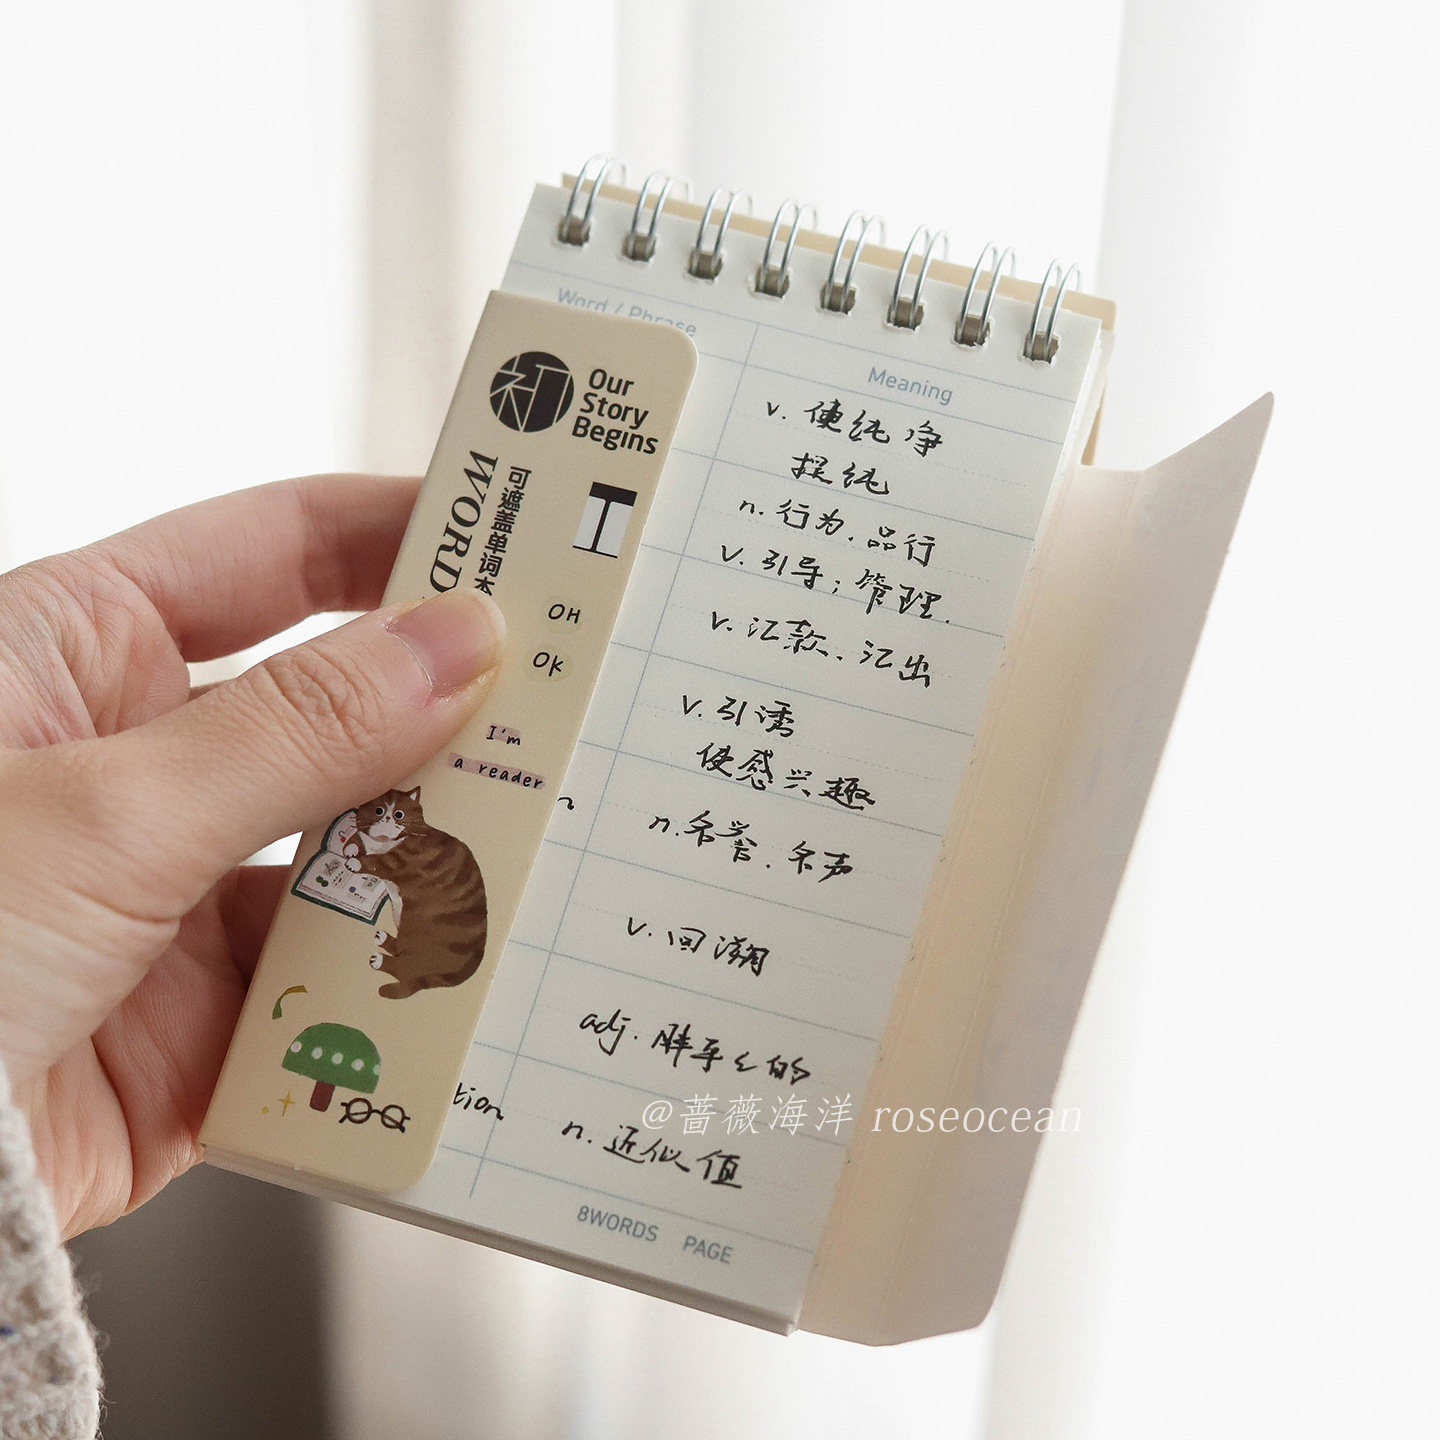 Word / Phrase
Meaning
初
Our
Story
Begins
可遮盖单词本
WORD
OH
OK
I'm
a reader
v. 使纯净
提纯
n. 行为、品行
v. 引导；管理.
v. 汇款、汇出
v. 引诱
使感兴趣
n. 名誉、名声
v. 回溯
adj. 胖乎乎的
tion
n. 近似值
8WORDS PAGE
@蔷薇海洋 roseocean